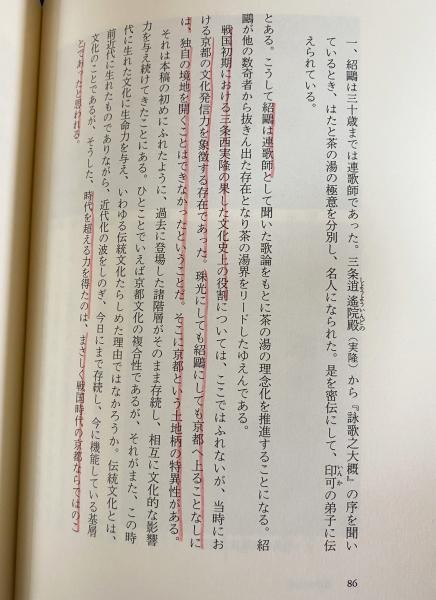 一、紹鷗は三十歳までは連歌師であった。三条逍遙院殿（実隆）から『詠歌之大概』の序を聞い
ているとき、はたと茶の湯の極意を分別し、名人になられた。是を密伝にして、印可の弟子に伝
えられている。
とある。こうして紹鷗は連歌師として聞いた歌論をもとに茶の湯の理念化を推進することになる。紹
鷗が他の数奇者から抜きん出た存在となり茶の湯界をリードしたゆえんである。
戦国初期における三条西実隆の果した文化史上の役割については、ここではふれないが、当時にお
ける京都の文化発信力を象徴する存在であった。珠光にしても紹鷗にしても京都へ上ることなしに
は、独自の境地を開くことはできなかったということだ。そこに京都という土地柄の特異性がある。
それは本稿の初めにふれたように、過去に登場した諸階層がそのまま存続し、相互に文化的な影響
力を与え続けてきたことにある。ひとことでいえば京都文化の複合性であるが、それがまた、この時
代に生れた文化に生命力を与え、いわゆる伝統文化たらしめた理由ではなかろうか。伝統文化とは、
前近代に生れたものでありながら、近代化の波をしのぎ、今日にまで存続し、今に機能している基層
文化のことであるが、そうした、時代を超える力を得たのは、まさしく戦国時代の京都ならではのこ
とであったと思われる。
86